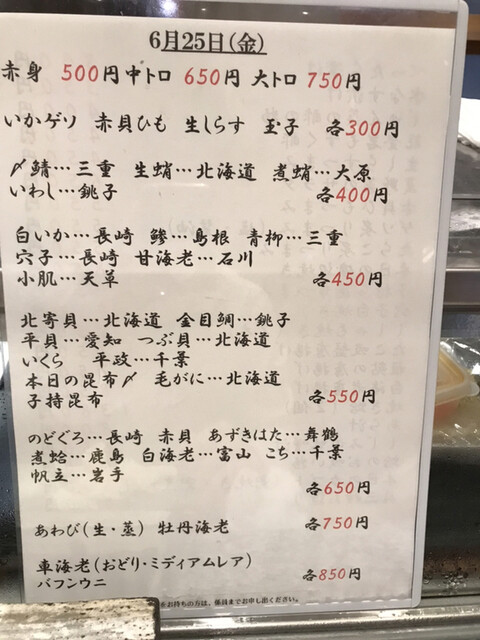 6月25日(金)
赤身 500円 中トロ 650円 大トロ 750円
いかゲソ 赤貝ひも 生しらす 玉子 各300円
〆鯖…三重 生蛸…北海道 煮蛸…大原
いわし…銚子 各400円
白いか…長崎 鯵…島根 青柳…三重
穴子…長崎 甘海老…石川
小肌…天草 各450円
北寄貝…北海道 金目鯛…銚子
平貝…愛知 つぶ貝…北海道
いくら 平政…千葉
本日の昆布〆 毛がに…北海道
子持昆布 各550円
のどぐろ…長崎 赤貝 あずきはた…舞鶴
煮蛤…鹿島 白海老…富山 こち…千葉
帆立…岩手
各650円
あわび(生・蒸) 牡丹海老 各750円
車海老(おどり・ミディアムレア)
バフンウニ 各850円
をお持ちの方は、係員までお申し出ください。